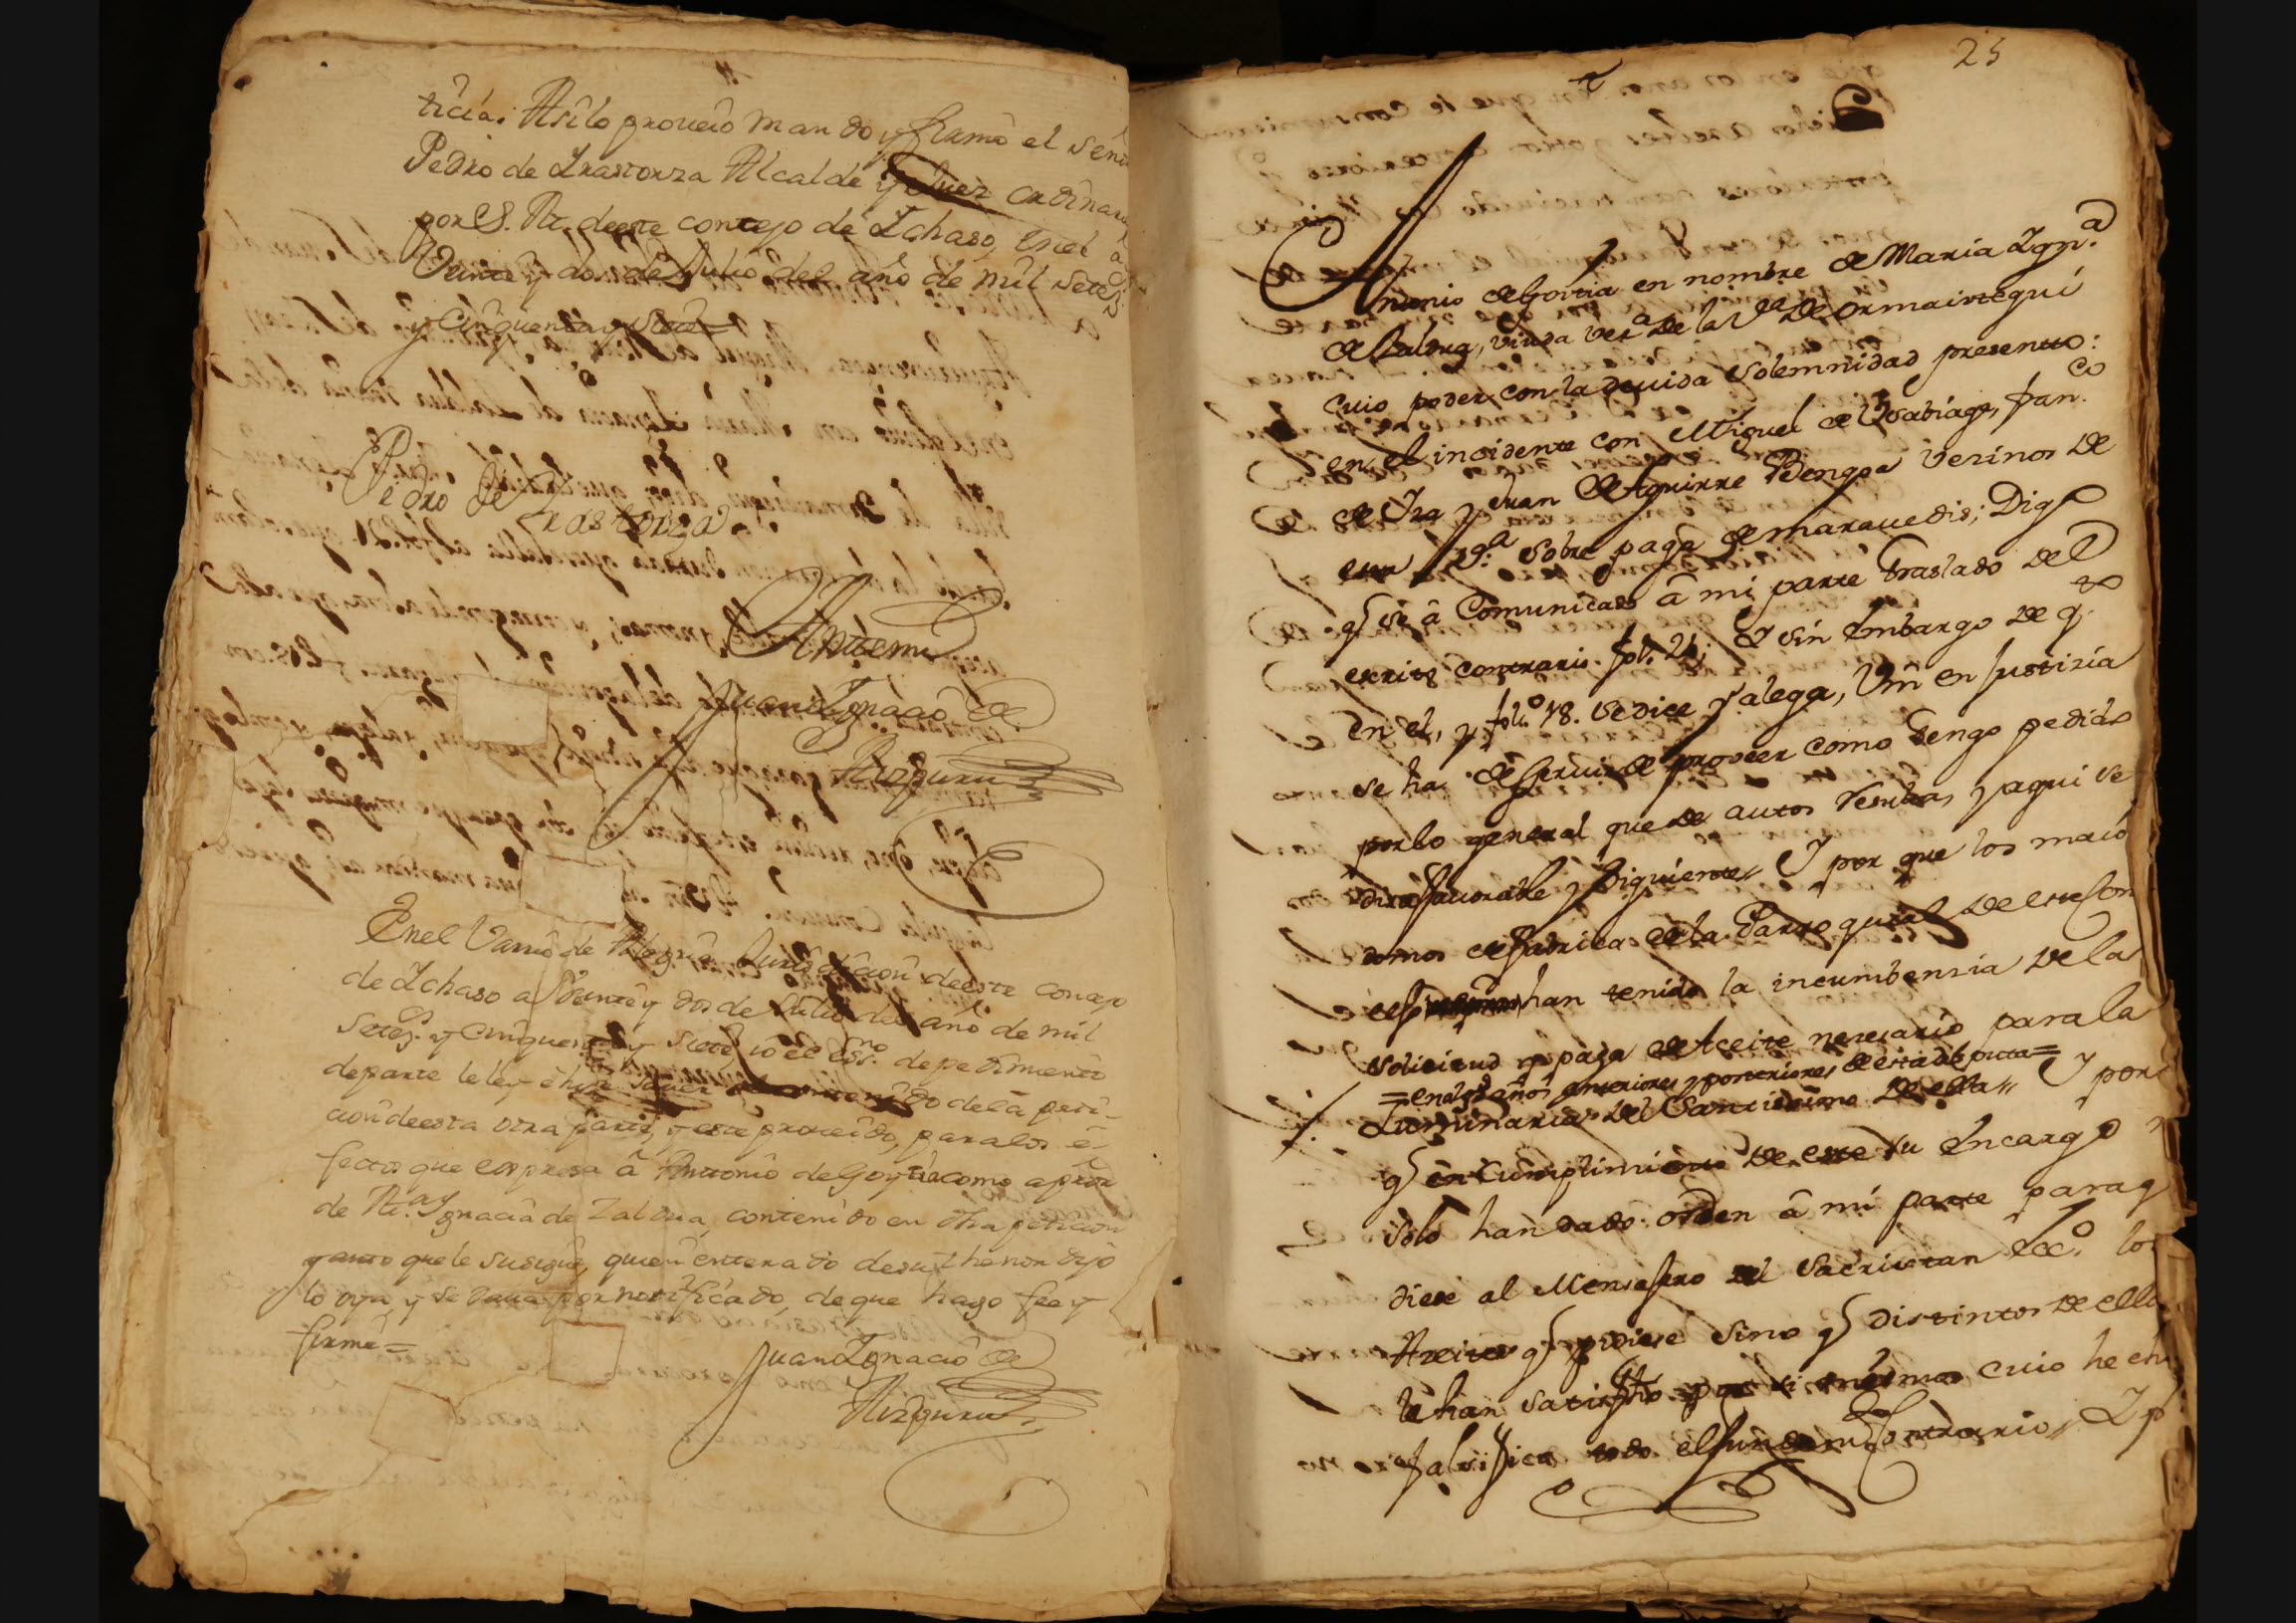 ticia: Asilo proveio mando y firmo el señ
Pedro de Yrastorza Alcalde y Juez ordinar
por S. M. deeste concejo de Ychaso, en el
Veinte y dos de Julio del año de mil sete
y cinquenta y siete =
Pedro de
Yrastorza
Antemi
Juan Ygnacio de
Aizpuru
En el Varrio de Alegria Jurisdicion deeste concejo
de Ychaso a Veinte y dos de Julio del año de mil
setez.s y cinquenta y siete io el Ess.no de pedimento
departe le ley e hize saver el contenido dela peti-
cion deesta otra parte, y este proveido, paralos e-
fectos que expresa â Antonio de Goytia como apor
de M.a Ygnacia de Zaldua contenido en dha peticion
y auto que le susigue, quien enterado desu thenor dijo
lo oya, y se dava por notificado, de que hago fee y
firmé =
Juan Ygnacio de
Aizpuru
25
Antonio de Goitia en nombre de Maria Ygn.a
de Zaldua, viuda vez.a de la V.a de Ormaiztegui
cuio poder con la devida Solemnidad presentto:
en el incidente con Miguel de Usabiaga, fran.co
de Yza y Juan de Aguirre Bengoa vezinos de
esta V.a sobre paga de maravedis; Digo
q se â Comunicado â mi parte traslado del
escrito contrario fol. 21; Y sin embargo de q.to
en el, y fol.o 18. se dice y alega, Vm en Justizia
se ha de servir de proveer como tengo pedido
por lo general que de autos resulta, y aqui se
dira favorable y siguiente, Y por que los maio
domos de fabrica de la Parroquial de este Con
han tenido la incumbensia de la
solicitud y paga de Aceite nezesario para la
= en los años anteriores y posteriores de esta disputta =
Luminaria del Santissimo de ella, Y por
q en Cumplimiento de este su Encargo
solo han dado orden â mi parte para q
diese al Mensajero del Sacristan &c.o los
Azeites q pidiese sino q distintos de ello
le han satisfho por si mismos cuio hecho
falsifica todo el fundam.to Contrario, Y p